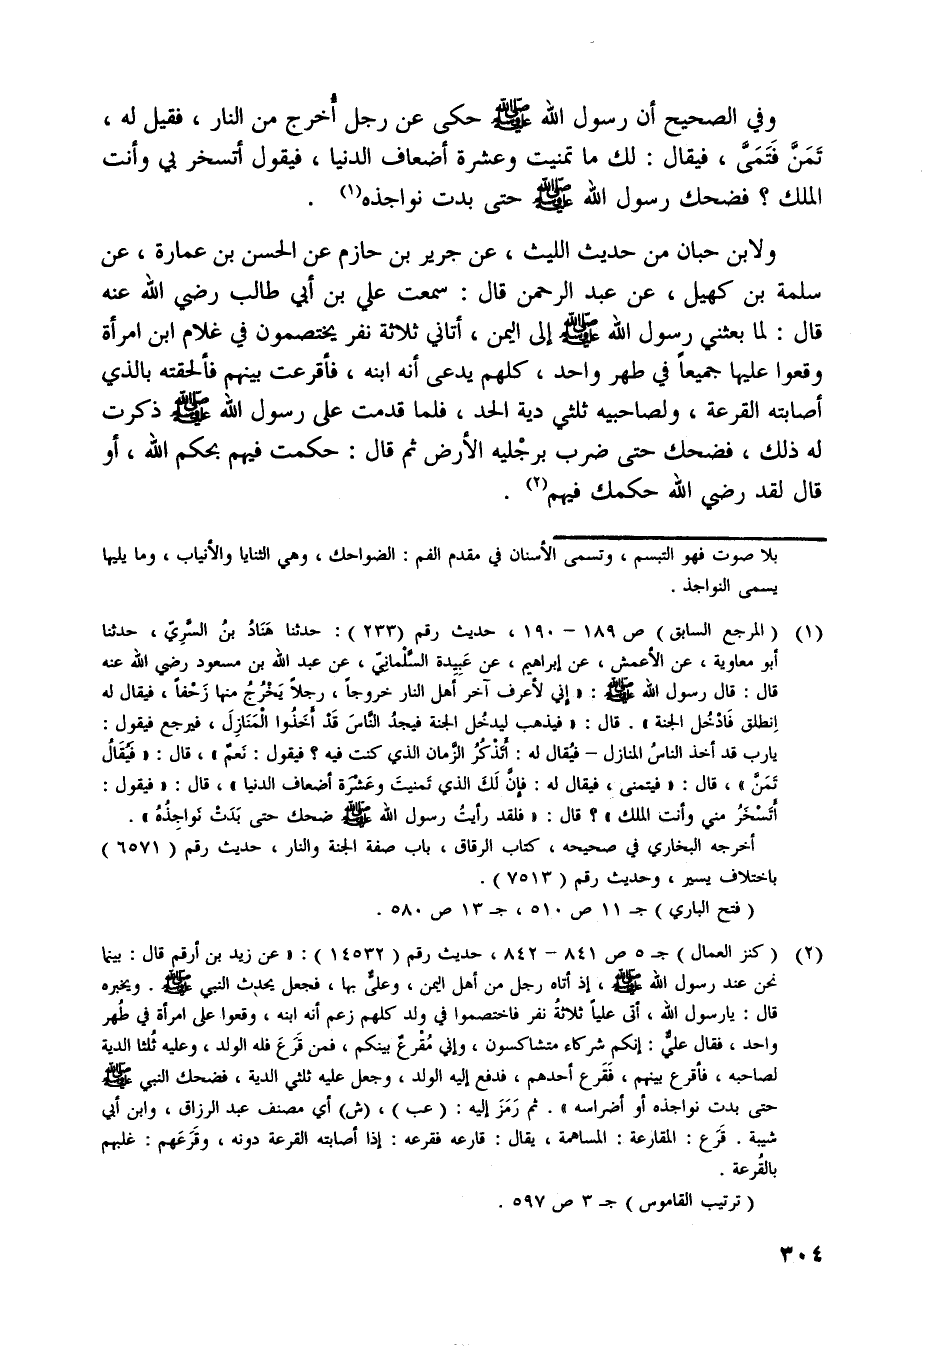 وفي الصحيح أن رسول الله ﷺ حكى عن رجل أُخرج من النار ، فقيل له ،
تَمَنَّ فَتَمَنَّى ، فيقال : لك ما تمنيت وعشرة أضعاف الدنيا ، فيقول أتسخر بي وأنت
الملك ؟ فضحك رسول الله ﷺ حتى بدت نواجذه(١) .
ولابن حبان من حديث الليث ، عن جرير بن حازم عن الحسن بن عمارة ، عن
سلمة بن كهيل ، عن عبد الرحمن قال : سمعت علي بن أبي طالب رضي الله عنه
قال : لما بعثني رسول الله ﷺ إلى اليمن ، أتاني ثلاثة نفر يختصمون في غلام ابن امرأة
وقعوا عليها جميعاً في طهر واحد ، كلهم يدعى أنه ابنه ، فأقرعت بينهم فألحقته بالذي
أصابته القرعة ، ولصاحبيه ثلثي دية الحد ، فلما قدمت على رسول الله ﷺ ذكرت
له ذلك ، فضحك حتى ضرب برجْليه الأرض ثم قال : حكمت فيهم بحكم الله ، أو
قال لقد رضي الله حكمك فيهم(٢) .
بلا صوت فهو التبسم ، وتسمى الأسنان في مقدم الفم : الضواحك ، وهي الثنايا والأنياب ، وما يليها
يسمى النواجذ .
(١) ( المرجع السابق ) ص ١٨٩ – ١٩٠ ، حديث رقم (٢٣٣ ) : حدثنا هَنَادُ بنُ السَّرِيّ ، حدثنا
أبو معاوية ، عن الأعمش ، عن إبراهيم ، عن عَبِيدة السَّلْمانيّ ، عن عبد الله بن مسعود رضي الله عنه
قال : قال رسول الله ﷺ : « إني لأعرف آخر أهل النار خروجاً ، رجلاً يَخْرُجُ منها زَحْفاً ، فيقال له
إنطلق فَادْخُل الجنة » . قال : « فيذهب ليدخُل الجنة فيجدُ النَّاسَ قَدْ أَخَذُوا الْمَنَازِلَ ، فيرجع فيقول :
يارب قد أخذ الناسُ المنازل – فيُقال له : أَتَذْكُرُ الزَّمان الذي كنت فيه ؟ فيقول : نَعمْ » ، قال : « فَيُقَالُ
تَمَنَّ » ، قال : « فيتمنى ، فيقال له : فإنَّ لَكَ الذي تَمنيتَ وعَشْرَة أضعاف الدنيا » ، قال : « فيقول :
أَتَسْخَرُ مني وأنت الملك » ؟ قال : « فلقد رأيتُ رسول الله ﷺ ضحك حتى بَدَتْ نَواجِذُهُ » .
أخرجه البخاري في صحيحه ، كتاب الرقاق ، باب صفة الجنة والنار ، حديث رقم ( ٦٥٧١ )
باختلاف يسير ، وحديث رقم ( ٧٥١٣ ) .
( فتح الباري ) جـ ١١ ص ٥١٠ ، جـ ١٣ ص ٥٨٠ .
(٢) ( كنز العمال ) جـ ٥ ص ٨٤١ – ٨٤٢ ، حديث رقم ( ١٤٥٣٢ ) : « عن زيد بن أرقم قال : بينما
نحن عند رسول الله ﷺ ، إذ أتاه رجل من أهل اليمن ، وعليٌّ بها ، فجعل يحدث النبي ﷺ . ويخبره
قال : يارسول الله ، أتى علياً ثلاثةُ نفر فاختصموا في ولد كلهم زعم أنه ابنه ، وقعوا على امرأة في طُهر
واحد ، فقال عليٌّ : إنكم شركاء متشاكسون ، وإني مُقْرعٌ بينكم ، فمن قَرَعَ فله الولد ، وعليه ثُلثا الدية
لصاحبه ، فأقرع بينهم ، فَقَرع أحدهم ، فدفع إليه الولد ، وجعل عليه ثلثي الدية ، فضحك النبي ﷺ
حتى بدت نواجذه أو أضراسه » . ثم رَمَزَ إليه : ( عب ) ، (ش) أي مصنف عبد الرزاق ، وابن أبي
شيبة . قَرَع : المقارعة : المساهمة ، يقال : قارعه فقرعه : إذا أصابته القرعة دونه ، وقَرَعَهم : غلبهم
بالقُرعة .
( ترتيب القاموس ) جـ ٣ ص ٥٩٧ .
٣٠٤